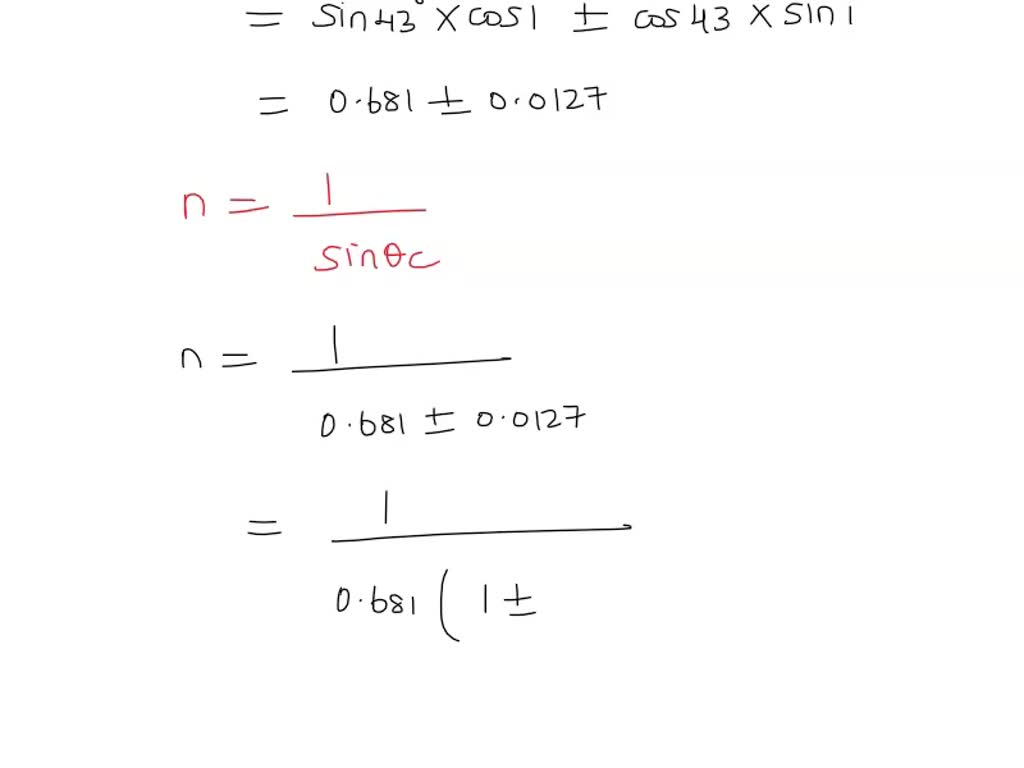 = sin43° × cos1 ± cos 43 × sin1
= 0.681 ± 0.0127
n = 1
sinθc
n = 1
0.681 ± 0.0127
= 1
0.681 ( 1 ±